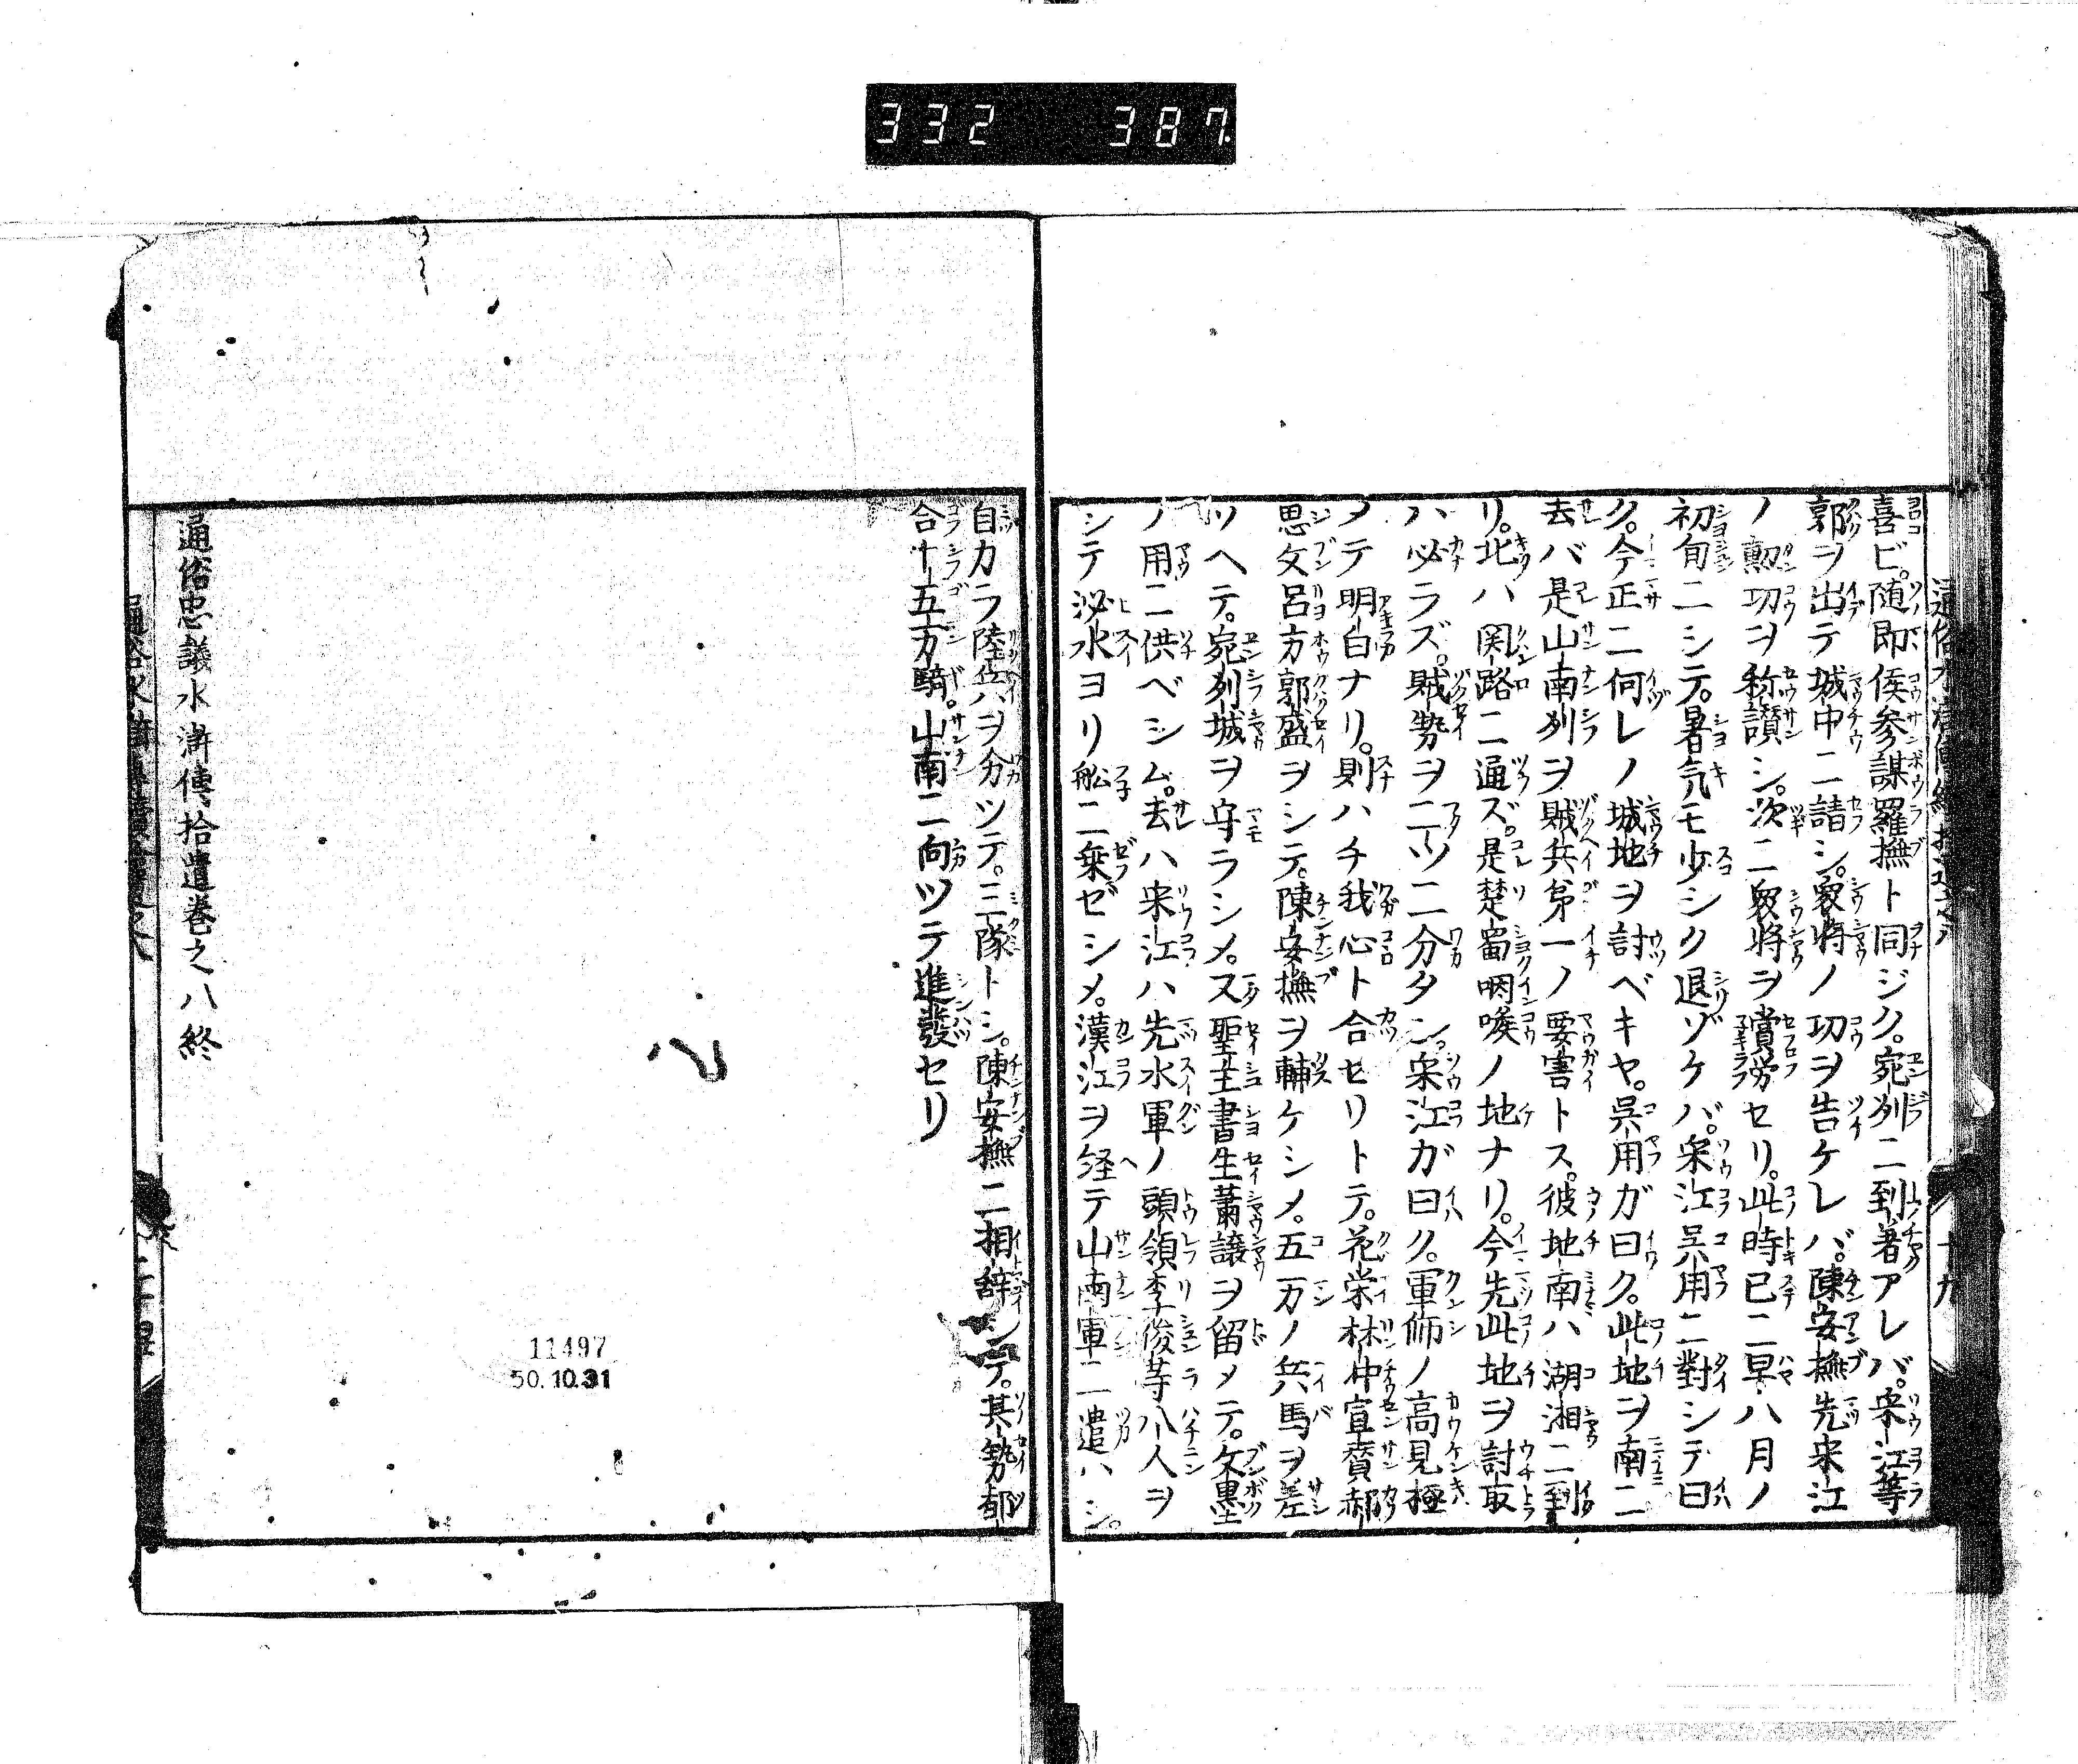 332 387
喜ビ。随即侯参謀羅撫ト同ジク。宛州ニ到著アレバ。宋江等
郭ヲ出テ城中ニ請シ。衆将ノ功ヲ告ケレバ。陳安撫先宋江
ノ勲功ヲ称讃シ。次ニ衆将ヲ賞労セリ。此時已ニ早八月ノ
初旬ニシテ。暑気モ少シク退ゾケバ。宋江呉用ニ對シテ曰
ク。今正ニ何レノ城地ヲ討ベキヤ。呉用ガ曰ク。此地ヲ南ニ
去バ是山南州ヲ賊兵第一ノ要害トス。彼地南ハ湖湘ニ到
リ。北ハ関路ニ通ズ。是楚蜀咽喉ノ地ナリ。今先此地ヲ討取
ハ必ラズ。賊勢ヲ二ツニ分タン。宋江ガ曰ク。軍師ノ高見極
メテ明白ナリ。則ハチ我心ト合セリトテ。花栄林冲宣賛郝
思文呂方郭盛ヲシテ。陳安撫ヲ輔ケシメ。五万ノ兵馬ヲ差
ツヘテ。宛州城ヲ守ラシメ。又聖主書生蕭譲ヲ留メテ。文墨
ノ用ニ供ベシム。去ハ宋江ハ先水軍ノ頭領李俊等八人ヲ
シテ泌水ヨリ舩ニ乗ゼシメ。漢江ヲ経テ山南軍ニ遣ハシ。
自カラ陸兵ハヲ分ツテ。三隊トシ。陳安撫ニ相辞シテ。其勢都
合十五万騎。山南ニ向ツテ進發セリ
11497
50.10.31
通俗忠議水滸傳拾遺巻之八終